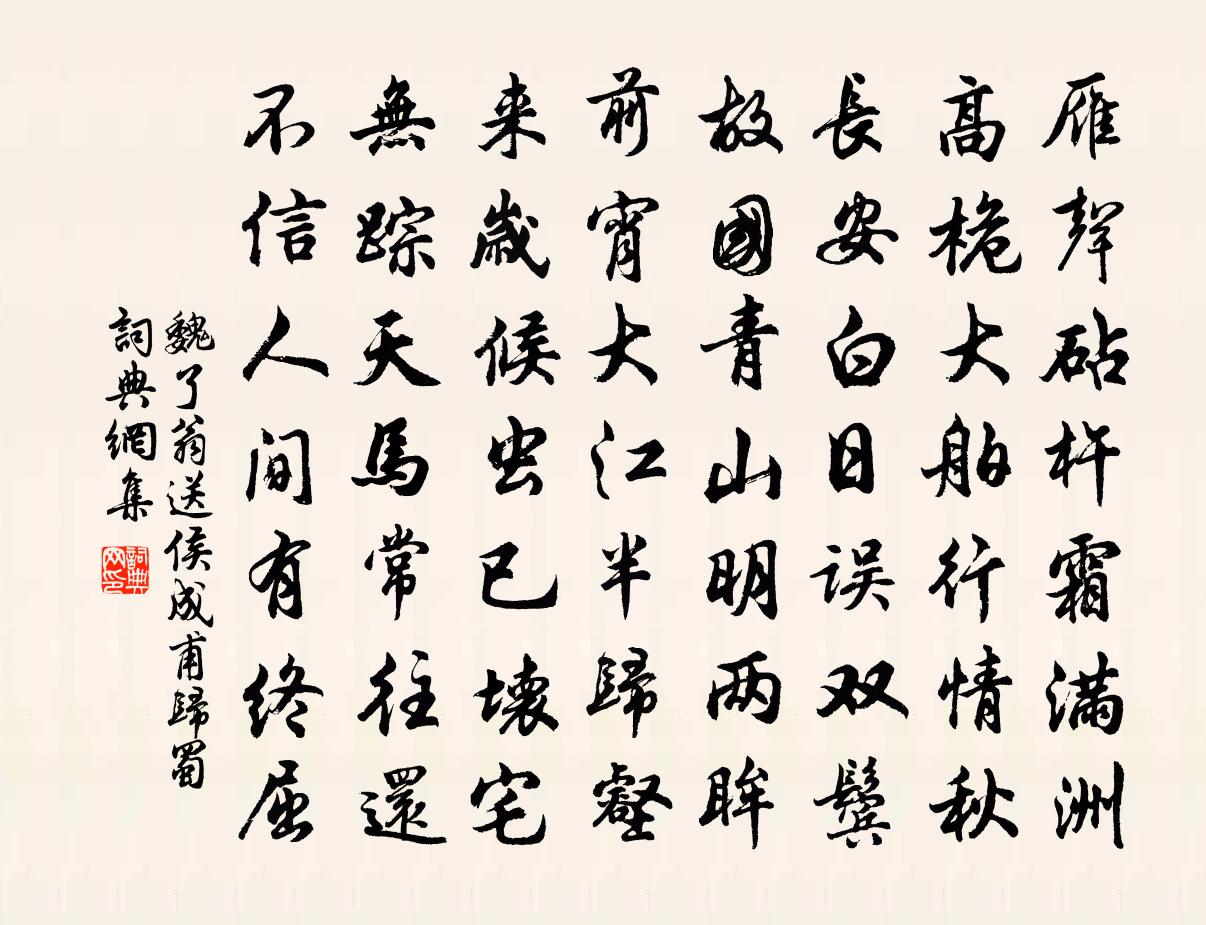 雁聲砧杵霜滿洲
高桅大舶行情秋
長安白日误双鬓
故國青山明两眸
前宵大江半歸壑
来歳候虫已壊宅
無踪天馬常往還
不信人间有终屈
魏了翁送侯成甫歸蜀
詞典網集
詞典网印